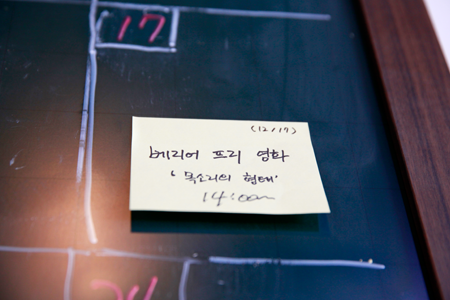 17
(12/17)
베리어 프리 영화
'목소리의 형태'
14:00~
24